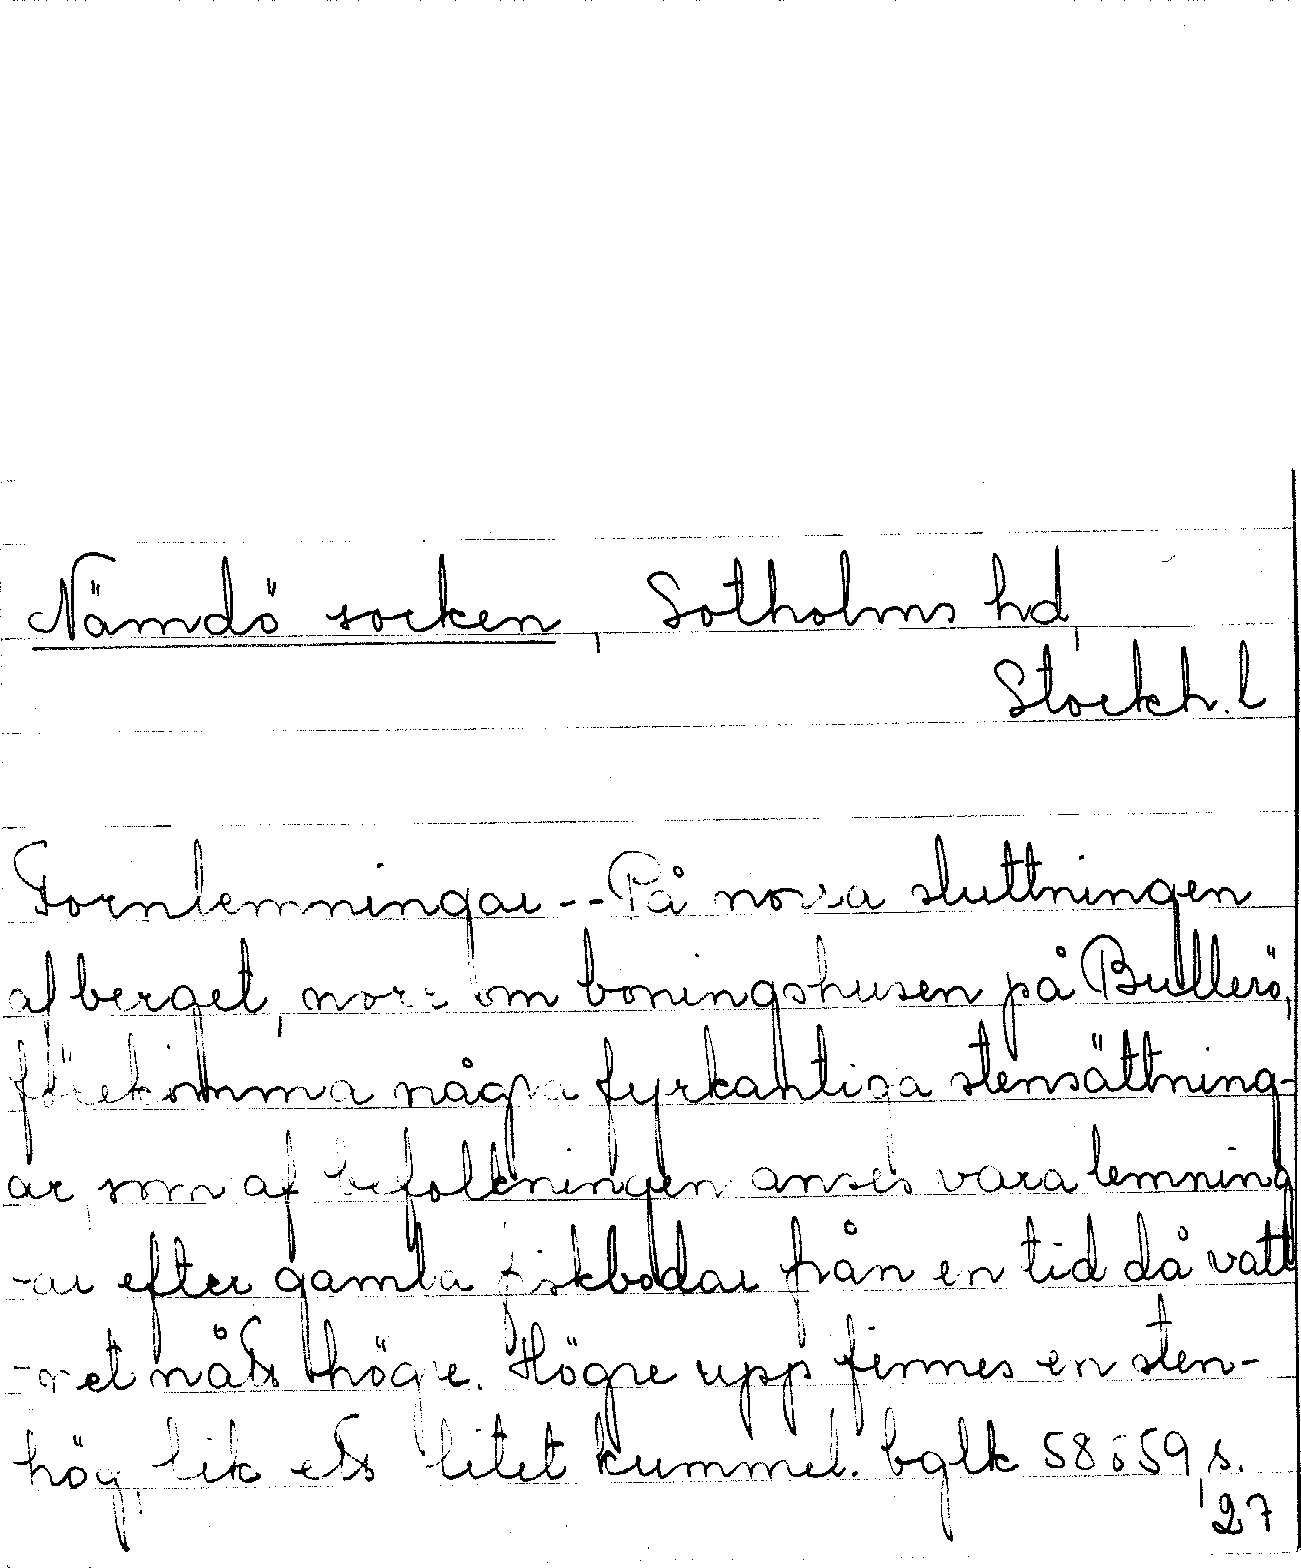 Nämdö socken, Sotholms hd,
Stockh. l
Fornlemningar -- På norra sluttningen
af berget, norr om boningshusen på Bullerö,
förekomma några fyrkantiga stensättning-
ar, som af befolkningen anses vara lemning
-ar efter gamla fiskbodar från en tid då vatt
-net nått högre. Högre upp finnes en sten-
hög, lik ett litet kummel. bglk 58 o 59, s.
27